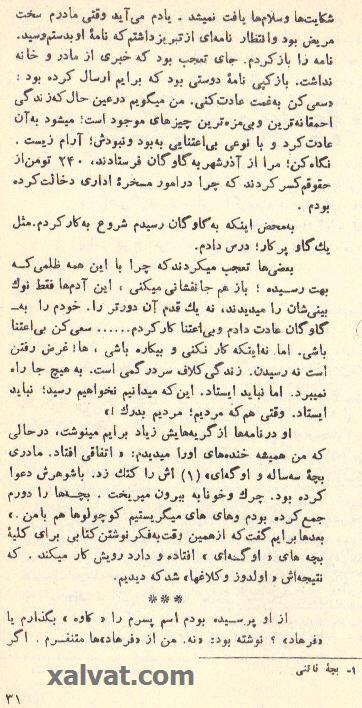 شکایت‌ها وسلام‌ها یافت نمیشد . یادم می‌آید وقتی مادرم سخت
مریض بود وانتظار نامه‌ای ازتبریزداشتم‌که نامهٔ اوبدستم‌رسید.
نامه را بازکردم. جای تعجب بود که خبری از مادر و خانه
نداشت. بازکپی نامهٔ دوستی بود که برایم ارسال کرده بود :
«سعی‌کن به‌غمت عادت‌کنی. من میگویم درعین حال‌که‌زندگی
احمقانه‌ترین و‌بی‌مزه‌ترین چیزهای موجود است؛ میشود به‌آن
عادت‌کرد و با نوعی بی‌اعتنایی به‌بود ونبودش؛ آرام زیست .
نگاه‌کن؛ مرا از آذرشهر‌به‌گاوگان فرستادند، ۲۴۰ تومن‌از
حقوقم‌کسر‌کردند که چرا درامور مسخرهٔ اداری دخالت‌کرده
بودم .
به‌محض اینکه به‌گاوگان رسیدم شروع به‌کار‌کردم.مثل
یك‌گاو پرکار؛ درس دادم.
بعضی‌ها تعجب میکردندکه چرا با این همه ظلمی‌کـه
بهت رسـیده ؛ باز هم جانفشانی میکنی ، این آدم‌ها فقط نوك
بینی‌شان را میدیدند، نه یك قدم آن دورتر را. خودم را به‌ـ
گاوگان عادت دادم وبی‌اعتنا کارکردم...... سعی‌کن بی‌اعتنا
باشی. اما نه‌اینکه کار نکنی و بیکاره باشی ، ها؛ غرض رفتن
است نه رسیدن. زندگی‌کلاف سردرگمی است. به هیچ جا راه
نمیبرد. اما نباید ایستاد. این‌که میدانیم نخواهیم رسید؛ نباید
ایستاد. وقتی هم‌که مردیم؛ مردیم بدرك !»
او درنامه‌ها ازگریه‌هایش زیاد برایم مینوشت، درحالی
که من همیشه خنده‌های اورا میدیدم: «اتفاقی افتاد. مادری
بچهٔ سه‌ساله و اوگه‌ای» (۱) اش را کتك زد. باشوهرش دعوا
کرده بود. چرك وخونابه بیرون میریخت . بچـه‌ها را دورم
جمع‌کرده بودم وهای های میگریستیم کوچولوها هم بامن .»
بعدها برایم گفت‌که ازهمین وقت‌به‌فکر‌نوشتن‌کتابی برای کلیهٔ
بچه های «اوگـه‌ای» افتاده و دارد رویش کار میکند . که
نتیجه‌اش «اولدوز وکلاغها» شدکه دیدیم.
***
از او پرسـیده بودم اسم پسرم را «کاوه» بگذارم یا
«فرهاد» ؟ نوشته بود: «نه، من از «فرهاد»ها متنفـرم . اگر
۱- بچهٔ ناتنی
xalvat.com
۳۱